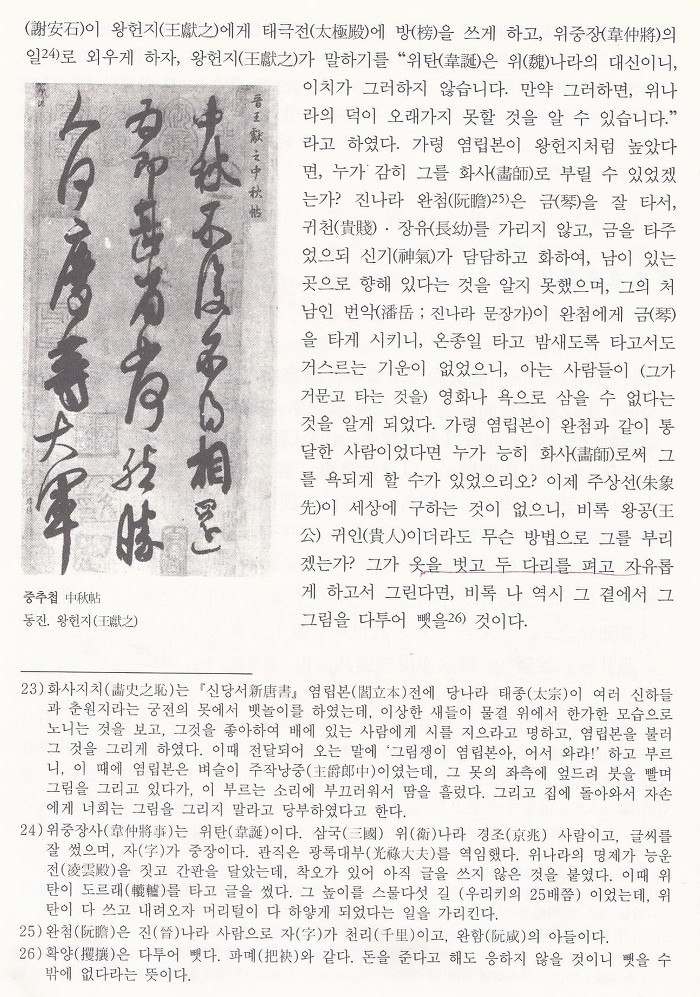 (謝安石)이 왕헌지(王獻之)에게 태극전(太極殿)에 방(榜)을 쓰게 하고, 위중장(韋仲將)의
일24)로 외우게 하자, 왕헌지(王獻之)가 말하기를 “위탄(韋誕)은 위(魏)나라의 대신이니,
이치가 그러하지 않습니다. 만약 그러하면, 위나
라의 덕이 오래가지 못할 것을 알 수 있습니다.”
라고 하였다. 가령 염립본이 왕헌지처럼 높았다
면, 누가 감히 그를 화사(畵師)로 부릴 수 있었겠
는가? 진나라 완첨(阮瞻)25)은 금(琴)을 잘 타서,
귀천(貴賤)·장유(長幼)를 가리지 않고, 금을 타주
었으되 신기(神氣)가 담담하고 화하여, 남이 있는
곳으로 향해 있다는 것을 알지 못했으며, 그의 처
남인 번악(潘岳 ; 진나라 문장가)이 완첨에게 금(琴)
을 타게 시키니, 온종일 타고 밤새도록 타고서도
거스르는 기운이 없었으니, 아는 사람들이 (그가
거문고 타는 것을) 영화나 욕으로 삼을 수 없다는
것을 알게 되었다. 가령 염립본이 완첨과 같이 통
달한 사람이었다면 누가 능히 화사(畵師)로써 그
를 욕되게 할 수가 있었으리오? 이제 주상선(朱象
先)이 세상에 구하는 것이 없으니, 비록 왕공(王
公) 귀인(貴人)이더라도 무슨 방법으로 그를 부리
겠는가? 그가 옷을 벗고 두 다리를 펴고 자유롭
게 하고서 그린다면, 비록 나 역시 그 곁에서 그
그림을 다투어 뺏을26) 것이다.
晉王獻之中秋帖
中秋不復不得相還
爲卽甚省如何然勝
人何慶等大軍
중추첩 中秋帖
동진. 왕헌지(王獻之)
23) 화사지치(畵史之恥)는 『신당서新唐書』 염립본(閻立本)전에 당나라 태종(太宗)이 여러 신하들
과 춘원지라는 궁전의 못에서 뱃놀이를 하였는데, 이상한 새들이 물결 위에서 한가한 모습으로
노니는 것을 보고, 그것을 좋아하여 배에 있는 사람에게 시를 지으라고 명하고, 염립본을 불러
그 것을 그리게 하였다. 이때 전달되어 오는 말에 ‘그림쟁이 염립본아, 어서 와라!’ 하고 부르
니, 이 때에 염립본은 벼슬이 주작낭중(主爵郎中)이였는데, 그 못의 좌측에 엎드려 붓을 빨며
그림을 그리고 있다가, 이 부르는 소리에 부끄러워서 땀을 흘렸다. 그리고 집에 돌아와서 자손
에게 너희는 그림을 그리지 말라고 당부하였다고 한다.
24) 위중장사(韋仲將事)는 위탄(韋誕)이다. 삼국(三國) 위(衛)나라 경조(京兆) 사람이고, 글씨를
잘 썼으며, 자(字)가 중장이다. 관직은 광록대부(光祿大夫)를 역임했다. 위나라의 명제가 능운
전(凌雲殿)을 짓고 간판을 달았는데, 착오가 있어 아직 글을 쓰지 않은 것을 붙였다. 이때 위
탄이 도르래(轆轤)를 타고 글을 썼다. 그 높이를 스물다섯 길 (우리키의 25배쯤) 이었는데, 위
탄이 다 쓰고 내려오자 머리털이 다 하얗게 되었다는 일을 가리킨다.
25) 완첨(阮瞻)은 진(晉)나라 사람으로 자(字)가 천리(千里)이고, 완함(阮咸)의 아들이다.
26) 확양(攫攘)은 다투어 뺏다. 파몌(把袂)와 같다. 돈을 준다고 해도 응하지 않을 것이니 뺏을 수
밖에 없다라는 뜻이다.